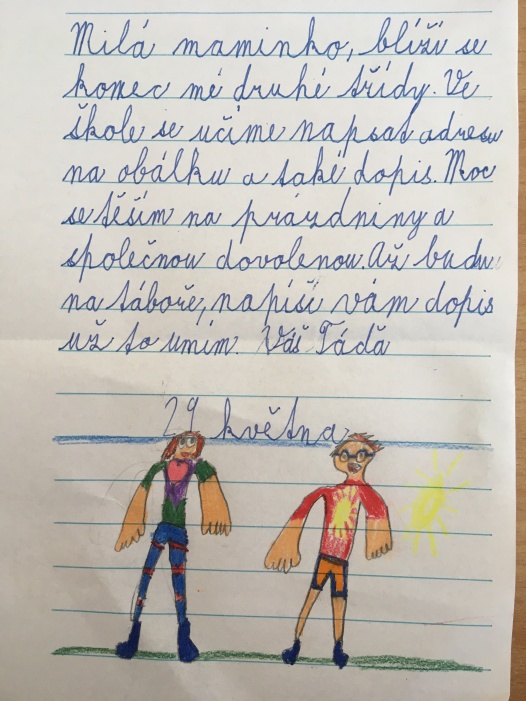 Milá maminko, blíží se
konec mé druhé třídy. Ve
škole se učíme napsat adresu
na obálku a také dopis. Moc
se těším na prázdniny a
společnou dovolenou. Až budu
na táboře, napíši vám dopis
už to umím. Váš Táďa
29 května